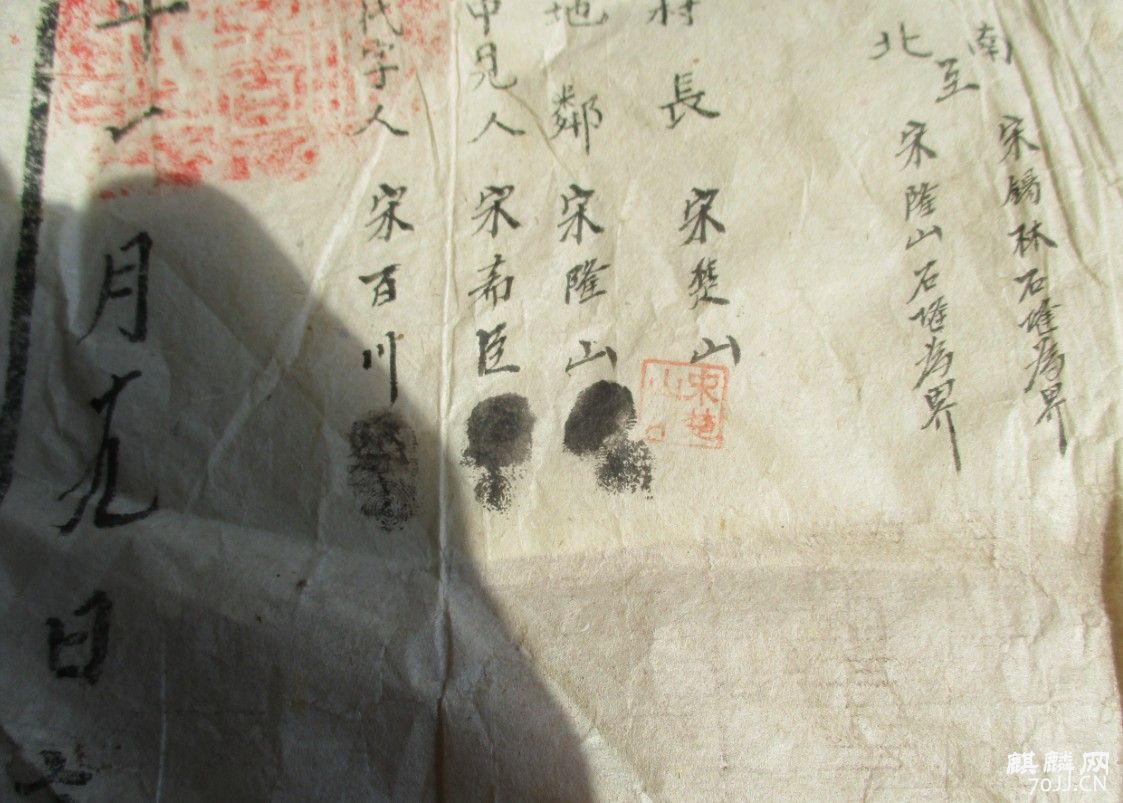 南
至
北
宋錫林石堰為界
宋隆山石堰為界
村長 宋楚山
宋楚山
地鄰 宋隆山
中見人 宋嘉臣
代字人 宋百川
十一月十九日立
麒麟网
70JJ.CN